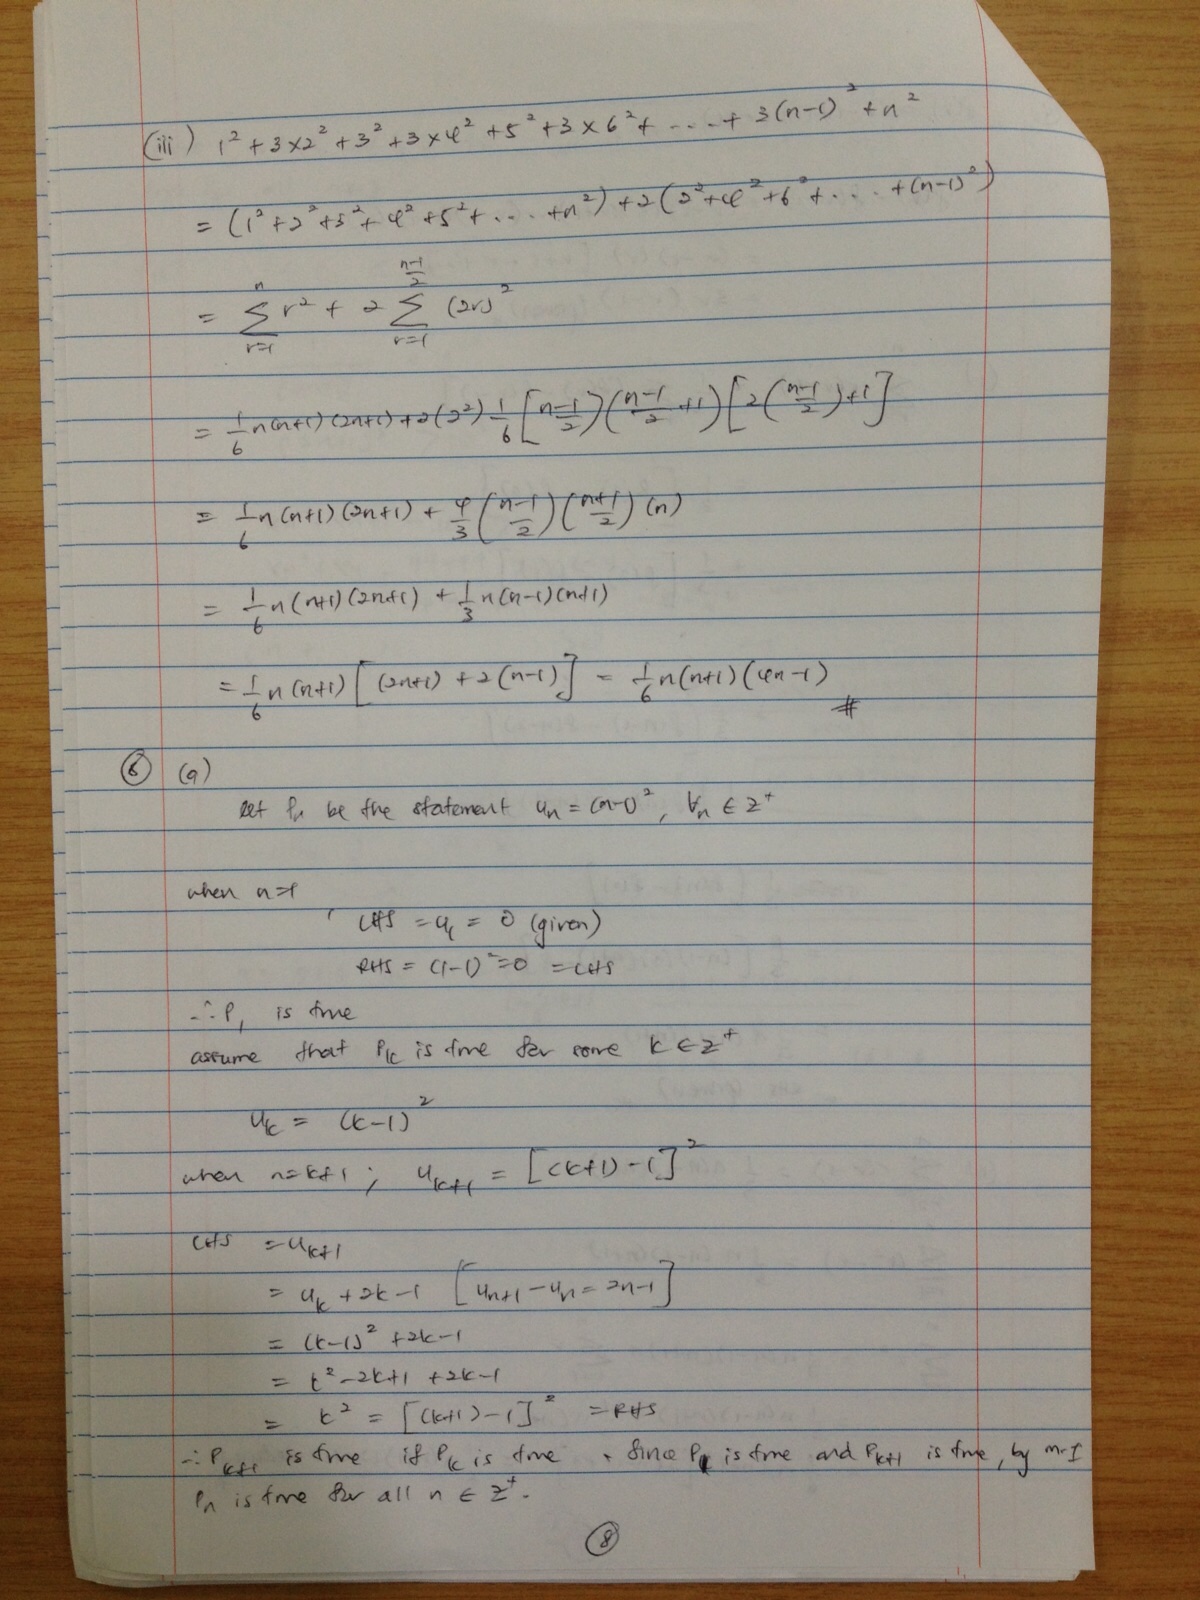 (iii) 1² + 3×2² + 3² + 3×4² + 5² + 3×6² + .... + 3(n-1)² + n²
= (1² + 2² + 3² + 4² + 5² + ... + n²) + 2(2² + 4² + 6² + .... + (n-1)²)
= \sum_{r=1}^{n} r² + 2 \sum_{r=1}^{\frac{n-1}{2}} (2r)²
= \frac{1}{6} n(n+1)(2n+1) + 2(2²) \frac{1}{6} [\frac{n-1}{2})(\frac{n-1}{2} + 1)[2(\frac{n-1}{2}) + 1]
= \frac{1}{6} n(n+1)(2n+1) + \frac{4}{3} (\frac{n-1}{2})(\frac{n+1}{2})(n)
= \frac{1}{6} n(n+1)(2n+1) + \frac{1}{3} n(n-1)(n+1)
= \frac{1}{6} n(n+1)[(2n+1) + 2(n-1)] = \frac{1}{6} n(n+1)(4n-1) #
⑥ (a)
let Pn be the statement uₙ = (n-1)², ∀n ∈ Z⁺
when n=1,
LHS = u₁ = 0 (given)
RHS = (1-1)² = 0 = LHS
∴ P₁ is true
assume that Pk is true for some k ∈ Z⁺
uk = (k-1)²
when n=k+1 ; uk+1 = [(k+1) - 1]²
LHS = uk+1
= uk + 2k-1 [un+1 - un = 2n-1]
= (k-1)² + 2k-1
= k² - 2k+1 + 2k-1
= k² = [(k+1) - 1]² = RHS
∴ Pk+1 is true if Pk is true . Since is true and Pk+1 is true, by m-I
Pn is true for all n ∈ Z⁺.
⑧